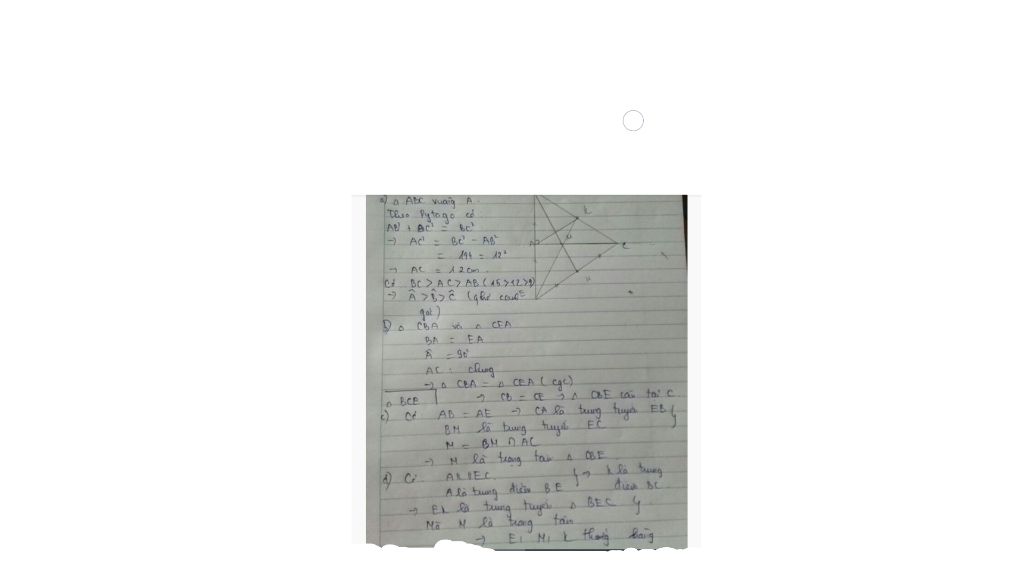 a) △ ABC vuông A.
Theo Pytago có
AB² + AC² = BC²
→ AC² = BC² - AB²
= 144 = 12²
→ AC = 12 cm.
Có BC > AC > AB (15>12>9)
→ Â > B̂ > Ĉ (
góc)
b) △ CBA và △ CEA
BA = EA
Â = 90°
AC : chung
→ △ CBA = △ CEA (cgc)
→ CB = CE → △ CBE cân tại C
△ BCE
c) Có AB = AE → CA là trung tuyến EB }
BM là trung tuyến EC
M = BM ∩ AC
→ M là trọng tâm △ CBE
d) Có AK // EC. } → K là trung
A là trung điểm BE điểm BC
→ EK là trung tuyến △ BEC }
Mà M là trọng tâm
→ E, M, K thẳng hàng